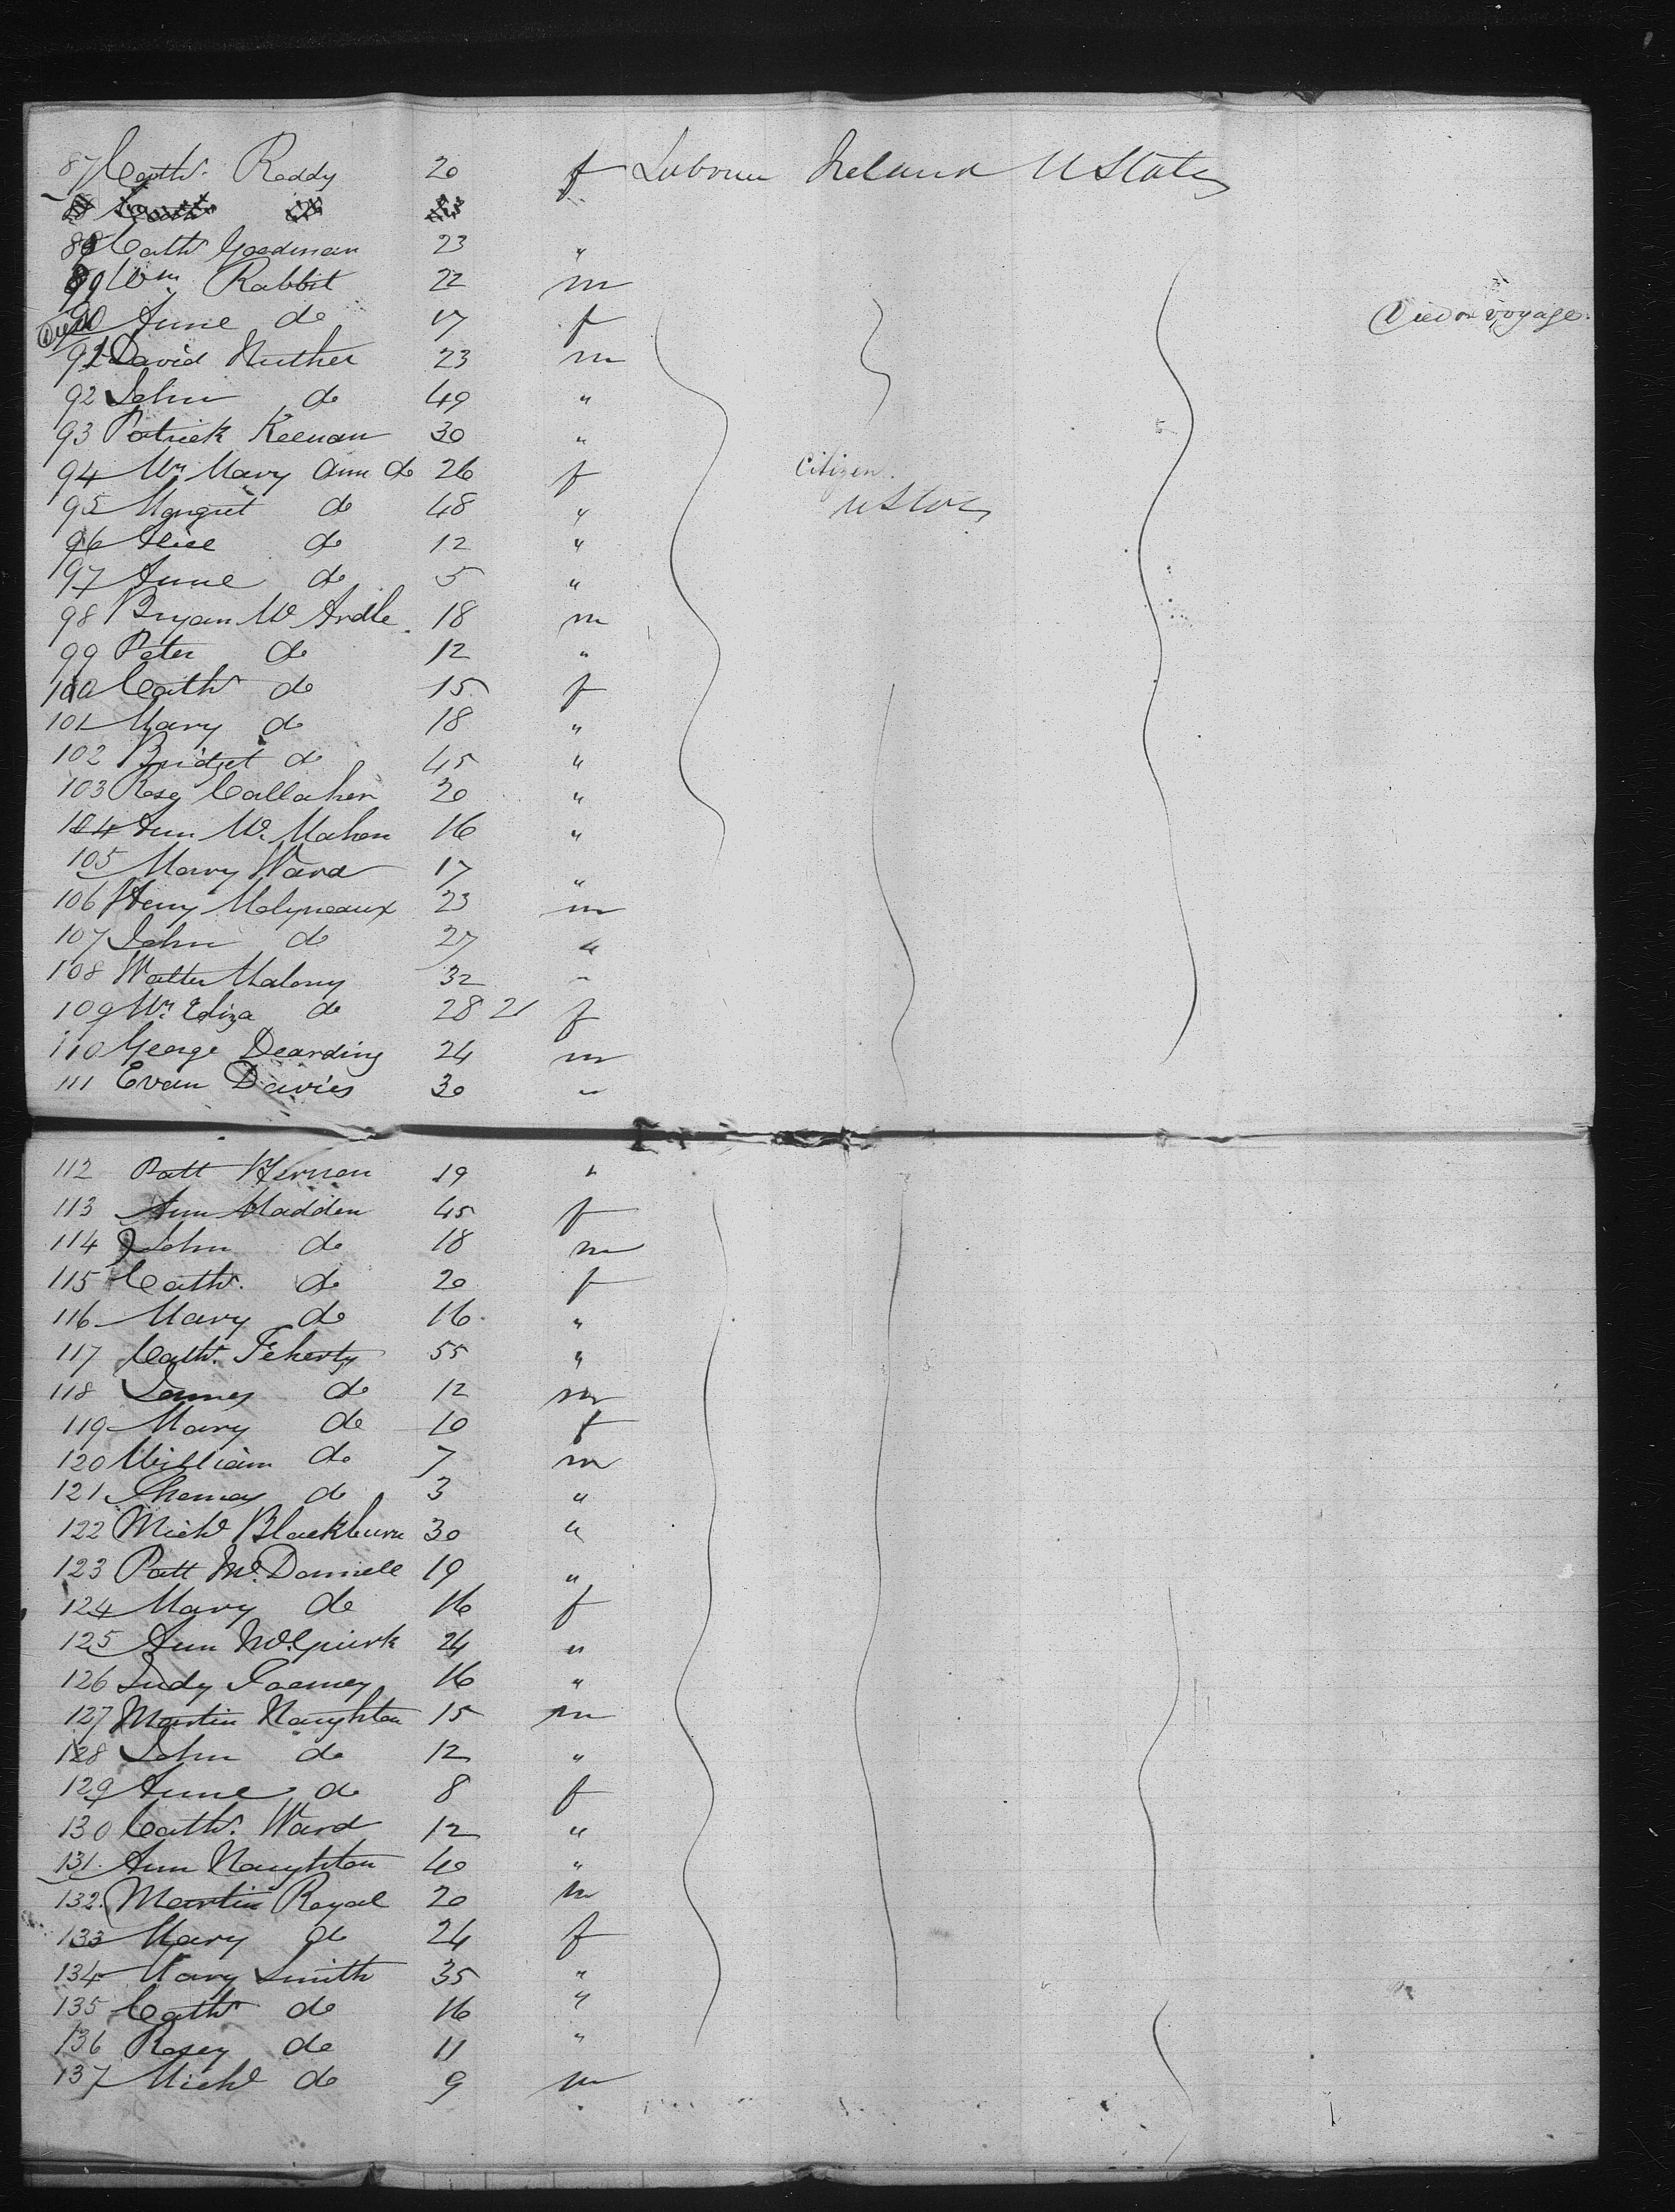 87 Cathe. Reddy 20 f Labourer Ireland U States
88 Cathe Goodman 23 "
89 Wm Rabbit 22 m
Died 90 Anne do 17 f Died on voyage.
91 David Huther 23 m
92 John do 49 "
93 Patrick Keenan 30 "
94 Mrs Mary Ann do 26 f Citizen
95 Margret do 48 " U States
96 Alice do 12 "
97 Anne do 5 "
98 Bryan Mc Ardle 18 m
99 Peter do 12 "
100 Cathe do 15 f
101 Mary do 18 "
102 Bridget do 45 "
103 Rosy Callahen 20 "
104 Ann Mc Mahon 16 "
105 Mary Ward 17 "
106 Henry Molyneaux 23 m
107 John do 27 "
108 Walter Malony 32 "
109 Mrs Eliza do 28 21 f
110 George Dearding 24 m
111 Evan Davies 30 "
112 Patt Hernon 19 "
113 Ann Madden 45 f
114 John do 18 m
115 Cathe. do 20 f
116 Mary do 16 "
117 Cathe. Feherty 55 "
118 James do 12 m
119 Mary do 10 f
120 William do 7 m
121 Thomas do 3 "
122 Michl Blackburn 30 "
123 Patt Mc Donnell 19 "
124 Mary do 16 f
125 Ann Mc Guirk 24 "
126 Judy 16 "
127 Martin Naughton 15 m
128 John do 12 "
129 Anne do 8 f
130 Cathe. Ward 12 "
131. Ann Naughton 40 "
132. Martin Royal 20 m
133 Mary do 24 f
134 Mary Smith 35 "
135 Cathe do 16 "
136 Rosey do 11 "
137 Michl do 9 m